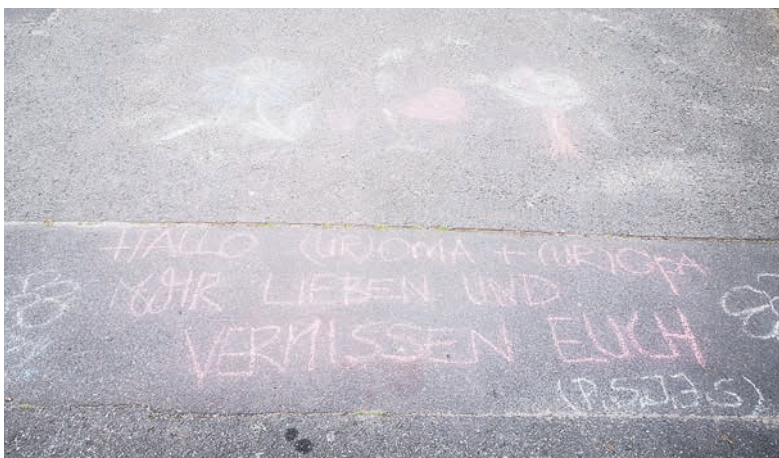 HALLO (UR)OMA + (UR)OPA
WIR LIEBEN UND
VERMISSEN EUCH
(P,S,J,J,S)